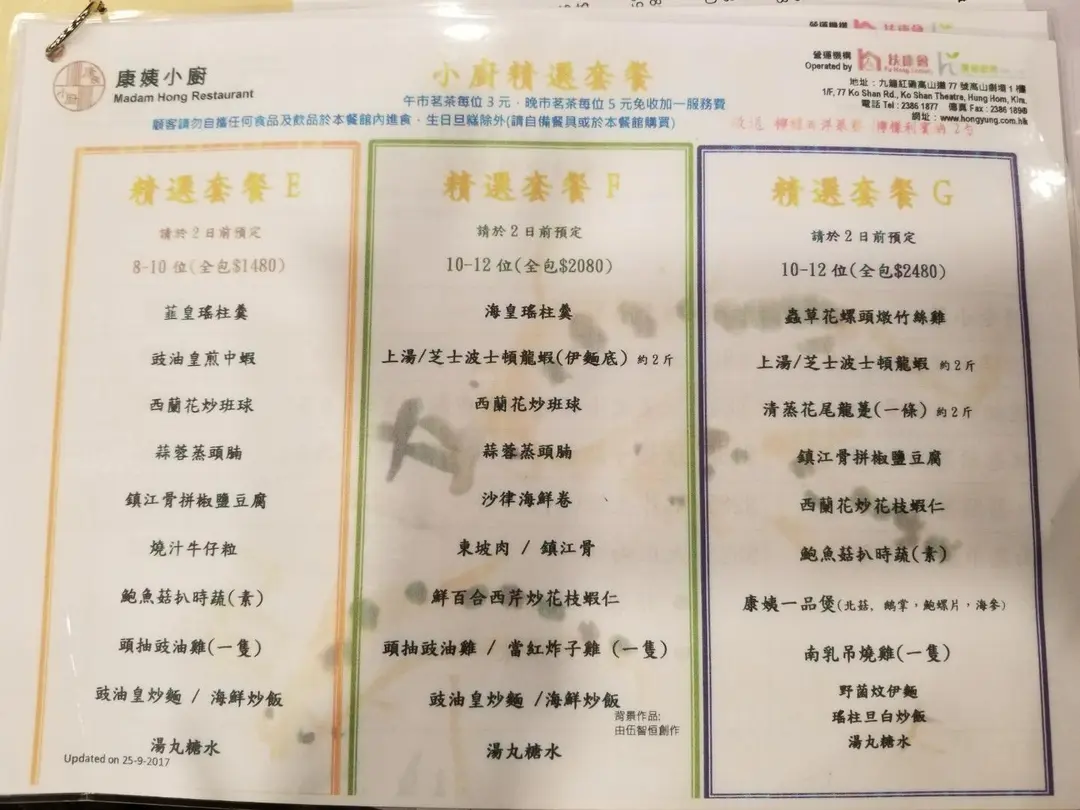 康姨小廚
Madam Hong Restaurant
小廚精選套餐
營運機構
Operated by
扶康會
Fu Hong Society
地址：九龍紅磡高山道 77 號高山劇場 1 樓
1/F, 77 Ko Shan Rd., Ko Shan Theatre, Hung Hom, Kln.
電話 Tel : 2386 1877 傳真 Fax : 2386 1896
網址：www.hongyung.com.hk
午市茗茶每位 3 元，晚市茗茶每位 5 元免收加一服務費
顧客請勿自攜任何食品及飲品於本餐館內進食，生日旦糕除外(請自備餐具或於本餐館購買)
精選套餐 E
請於 2 日前預定
8-10 位(全包$1480)
韮皇瑤柱羹
豉油皇煎中蝦
西蘭花炒班球
蒜蓉蒸頭腩
鎮江骨拼椒鹽豆腐
燒汁牛仔粒
鮑魚菇扒時蔬(素)
頭抽豉油雞(一隻)
豉油皇炒麵 / 海鮮炒飯
湯丸糖水
Updated on 25-9-2017
精選套餐 F
請於 2 日前預定
10-12 位(全包$2080)
海皇瑤柱羹
上湯/芝士波士頓龍蝦(伊麵底) 約 2 斤
西蘭花炒班球
蒜蓉蒸頭腩
沙律海鮮卷
東坡肉 / 鎮江骨
鮮百合西芹炒花枝蝦仁
頭抽豉油雞 / 當紅炸子雞 (一隻)
豉油皇炒麵 /海鮮炒飯
湯丸糖水
背景作品:
由伍智恒創作
精選套餐 G
請於 2 日前預定
10-12 位(全包$2480)
蟲草花螺頭燉竹絲雞
上湯/芝士波士頓龍蝦 約 2 斤
清蒸花尾龍躉(一條) 約 2 斤
鎮江骨拼椒鹽豆腐
西蘭花炒花枝蝦仁
鮑魚菇扒時蔬(素)
康姨一品煲(北菇, 鵝掌，鮑螺片，海參)
南乳吊燒雞(一隻)
野菌炆伊麵
瑤柱旦白炒飯
湯丸糖水